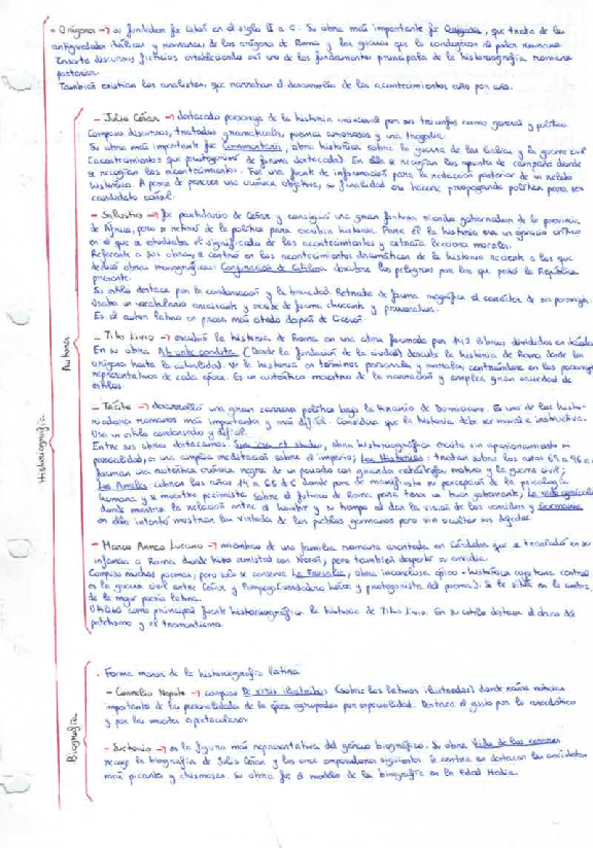 - Orígenes → su fundador fue Catón en el siglo II a.C. Su obra más importante fue Orígenes, que trata de las
antigüedades itálicas y romanas, de los orígenes de Roma y las guerras que la condujeron al poder romano.
Inserta discursos ficticios estableciendo así uno de los fundamentos principales de la historiografía romana
posterior.
También existían los analistas, que narraban el desarrollo de los acontecimientos año por año.
Historiografía
Autores
- Julio César → destacado personaje de la historia universal por sus triunfos como general y político.
Compuso discursos, tratados gramaticales, poemas amorosos y una tragedia.
Su obra más importante fue Commentarii, obra histórica sobre la guerra de las Galias y la guerra civil
(acontecimientos que protagonizó de forma destacada). En ella se recogían los apuntes de campaña donde
se recogían los acontecimientos. Fue una fuente de información para la redacción posterior de un relato
histórico. A pesar de parecer una crónica objetiva, su finalidad era hacerse propaganda política para ser
candidato cónsul.
- Salustio → fue partidario de César y consiguió una gran fortuna siendo gobernador de la provincia
de África, pero se retiró de la política para escribir historia. Para él la historia era un ejercicio crítico
en el que se estudiaba el significado de los acontecimientos y extraía lecciones morales.
Referente a sus obras, se centró en los acontecimientos dramáticos de la historia reciente a los que
dedicó obras monográficas: Conjuración de Catilina: descubre los peligros por los que pasó la República
presente.
Su estilo destaca por la condensación y la brevedad. Retrata de forma magnífica el carácter de sus personajes.
Usaba un vocabulario y de forma chocante y provocativa.
Es el autor latino en prosa más citado después de Cicerón.
- Tito Livio → escribió la historia de Roma en una obra formada por 142 libros divididos en décadas
En su obra Ab urbe condita (Desde la fundación de la ciudad) describe la historia de Roma desde los
orígenes hasta la actualidad. Ve la historia en términos personales y morales, centrándose en los personajes
representativos de cada época. Es un auténtico maestro de la narración y emplea gran variedad de
estilos.
- Tácito → desarrolló una gran carrera política bajo la tiranía de Domiciano. Es uno de los histo-
riadores romanos más importantes y más difícil. Considera que la historia debe ser moral e instructiva.
Usa un estilo condensado y difícil.
Entre sus obras destacamos: obra historiográfica escrita sin apasionamiento ni
parcialidad, es una amplia meditación sobre el imperio; Las Historias: tratan sobre los años 69 a 96 d.C.
forman una auténtica crónica negra de un periodo con grandes catástrofes, motines y la guerra civil;
Los Anales: cubren los años 14 a 68 d.C donde pone de manifiesto su percepción de la psicología
humana y se muestra pesimista sobre el futuro de Roma para tener un buen gobernante; La vida agrícola
donde muestra la relación entre el hombre y su tiempo al dar la visión de los vencidos y Germania
en ella intentó mostrar las virtudes de los pueblos germanos pero sin ocultar sus defectos.
- Marco Anneo Lucano → miembro de una familia romana asentada en Córdoba que se trasladó en su
infancia a Roma donde hizo amistad con Nerón, pero también despertó su envidia.
Compuso muchos poemas, pero sólo se conserva La Farsalia, obra inconclusa épico-histórica cuyo tema central
es la guerra civil entre César y Pompeyo (verdadero héroe y protagonista del poema). Se le sitúa en la cumbre
de la mejor poesía latina.
Utilizó como principal fuente historiográfica la historia de Tito Livio. En su estilo destaca el abuso del
patetismo y el tremendismo.
Biografía
- Forma menor de la historiografía latina
- Cornelio Nepote → compuso De viris illustribus (sobre los latinos ilustrados) donde reúne noticias
importantes de las personalidades de la época agrupadas por especialidad. Destaca el gusto por lo anecdótico
y por las muertes espectaculares
- Suetonio → es la figura más representativa del género biográfico. Su obra Vida de los césares
recoge la biografía de Julio César y los once emperadores siguientes. Se centra en destacar las anécdotas
más picantes y chismosas. Su obra fue el modelo de la biografía en la Edad Media.